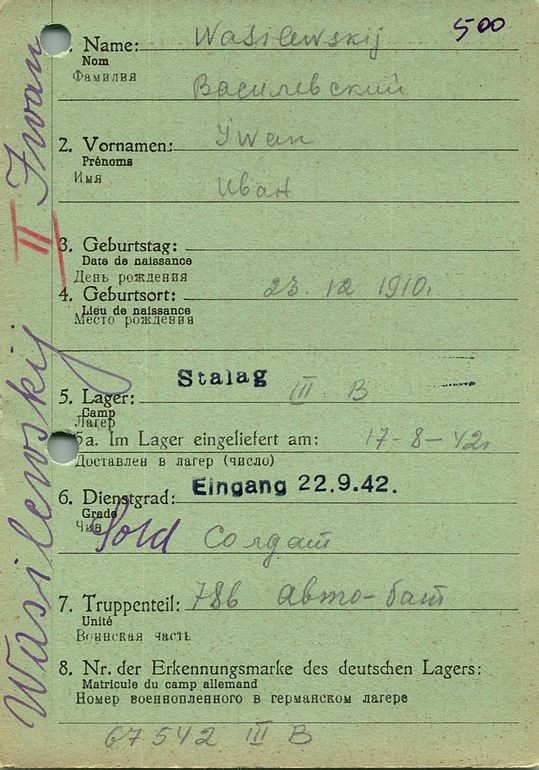 500
. Name: Wasilewskij
Nom
Фамилия
Василевский
2. Vornamen: Iwan
Prénoms
Имя
Иван
3. Geburtstag:
Date de naissance
День рождения
4. Geburtsort: 23 12 1910.
Lieu de naissance
Место рождения
Stalag
5. Lager: III B
Camp
Лагер
5a. Im Lager eingeliefert am: 17-8-42г
Доставлен в лагер (число)
Eingang 22.9.42.
6. Dienstgrad:
Grade
Чин
Sold Солдат
7. Truppenteil: 786 авто-бат
Unité
Воинская часть
8. Nr. der Erkennungsmarke des deutschen Lagers:
Matricule du camp allemand
Номер военнопленного в германском лагере
67542 III B
Wasilewskij II Iwan